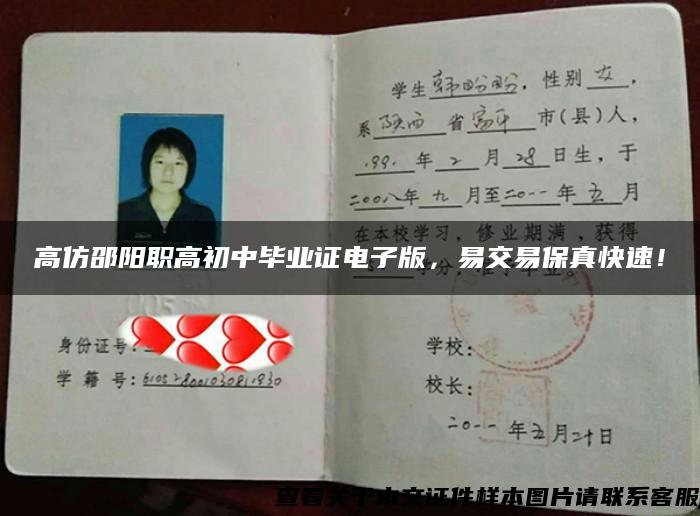 学生韩盼盼，性别女，
系陕西省富平市(县)人，
199.年2月28日生，于
二00八年九月至二0一一年五月
在本校学习，修业期满，获得
高仿邵阳职高初中毕业证电子版，易交易保真快速！
学分，准予毕业。
身份证号：
学籍号：
学校：
校长：
二0一一年五月二十日
查看关于本文证件样本图片请联系客服